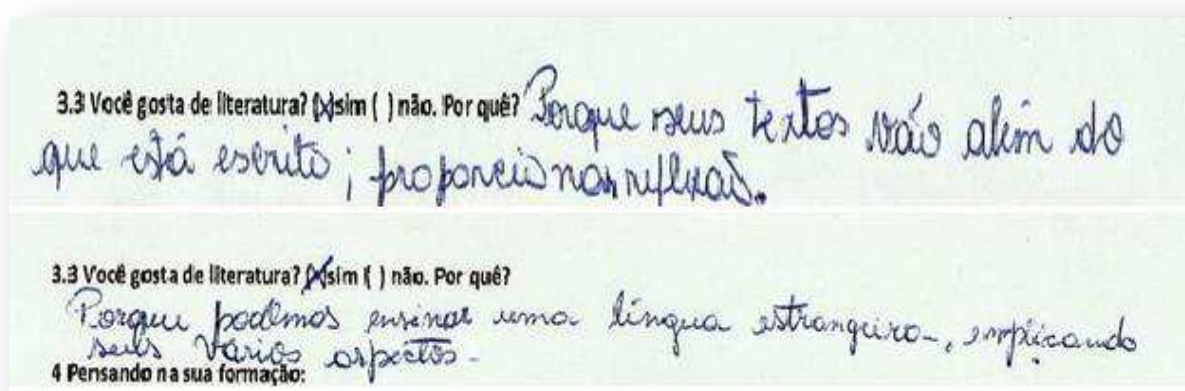 3.3 Você gosta de literatura? (x)sim ( ) não. Por quê? Porque seus textos vão além do
que está escrito; proporcionam reflexão.
3.3 Você gosta de literatura? (x)sim ( ) não. Por quê?
Porque podemos ensinar uma língua estrangeira, implicando
seus vários aspectos.
4 Pensando na sua formação: